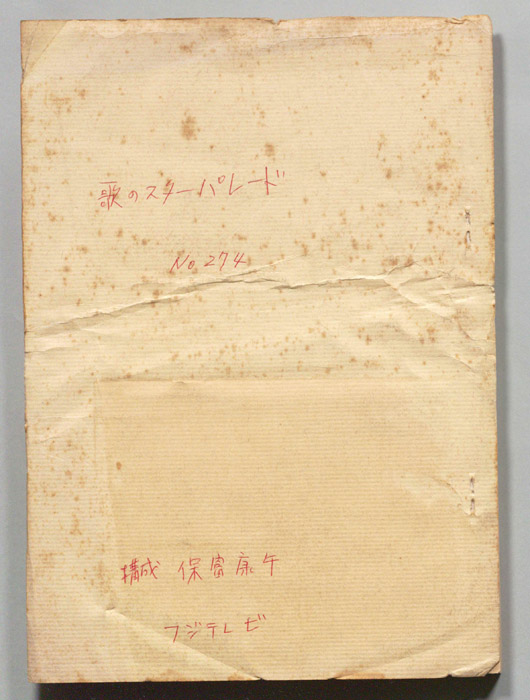 歌のスターパレード
No.274
構成 保富康午
フジテレビ